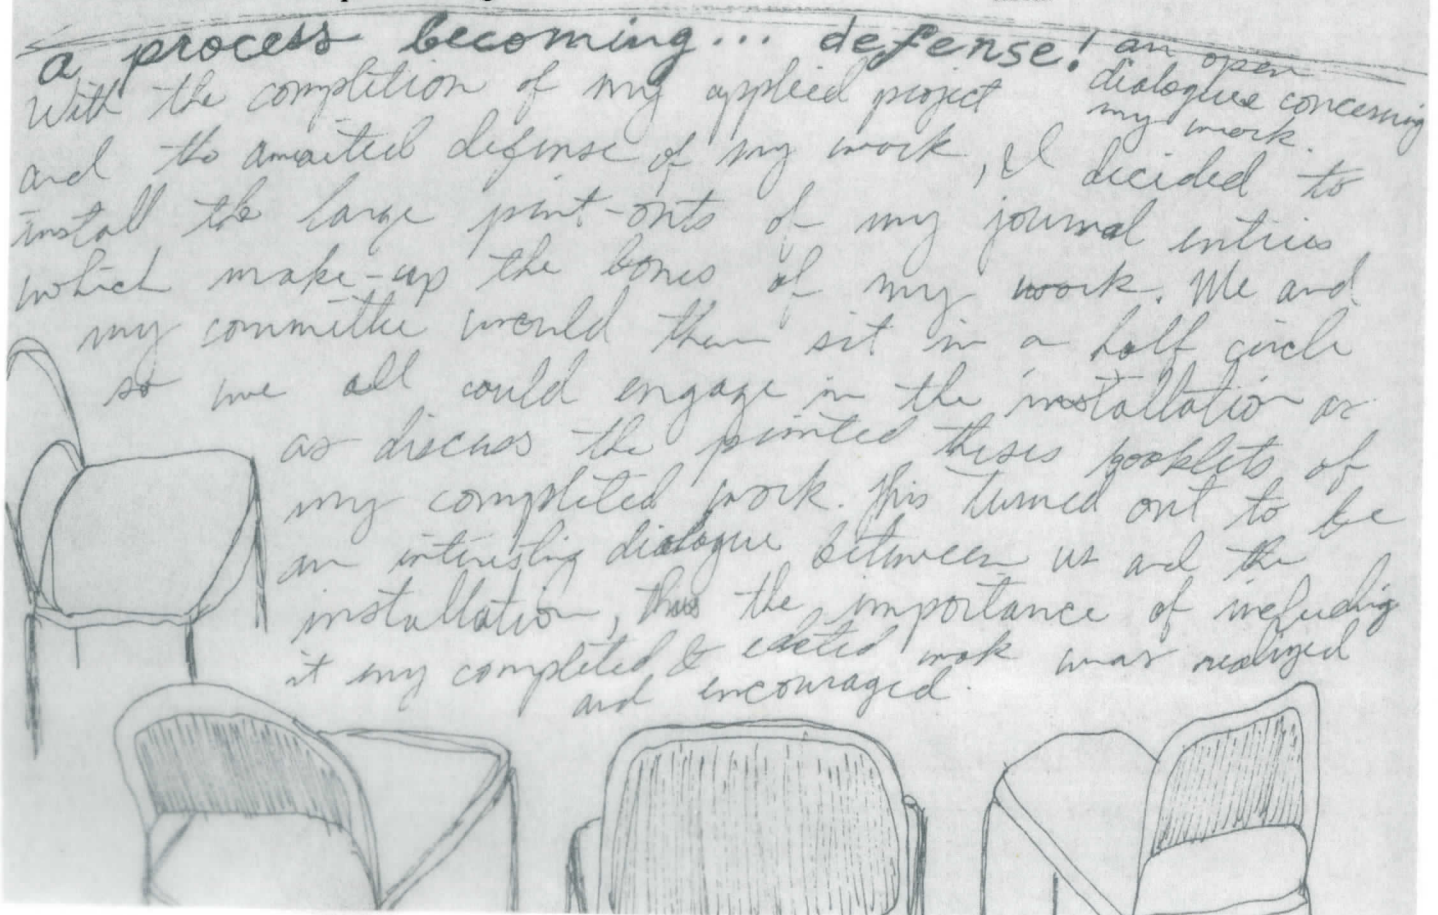 a process becoming... defense! an open
dialogue concerning
my work.
With the completion of my applied project
and the awaited defense of my work, I decided to
install the large print-outs of my journal entries
which make-up the bones of my work. Me and
my committee would then sit in a half circle
so we all could engage in the installation as
as discuss the printed thesis booklets of
my completed work. This turned out to be
an interesting dialogue between us and the
installation, thus the importance of including
it my completed & edited work was realized
and encouraged.